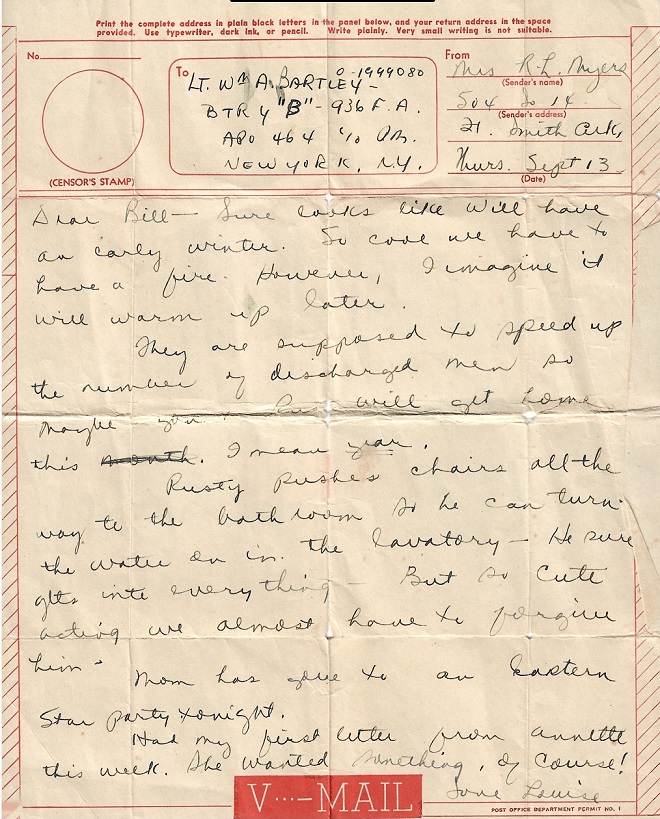 Print the complete address in plain block letters in the panel below, and your return address in the space
provided. Use typewriter, dark ink, or pencil. Write plainly. Very small writing is not suitable.
No.
(CENSOR'S STAMP)
To
LT. Wm A. BARTLEY - O-1999080
BTRY "B" - 936 F.A.
APO 464 c/o P.M.
NEW YORK, N.Y.
From
Mrs R. L. Myers
(Sender's name)
504 So 14
(Sender's address)
Ft. Smith Ark,
Thurs. Sept 13
(Date)
Dear Bill - Sure looks like we'll have
an early winter. So cool we have to
have a fire. However, I imagine it
will warm up later.
They are supposed to speed up
the number of discharged men so
maybe you + will get home
this month. I mean year.
Rusty pushes chairs all the
way to the bathroom so he can turn
the water on in the lavatory - He sure
gets into everything - But so cute
acting we almost have to forgive
him -
Mom has gone to an Eastern
Star party tonight.
Had my first letter from Annette
this week. She wanted something, of course!
Love Louise
V···–MAIL
POST OFFICE DEPARTMENT PERMIT NO. 1